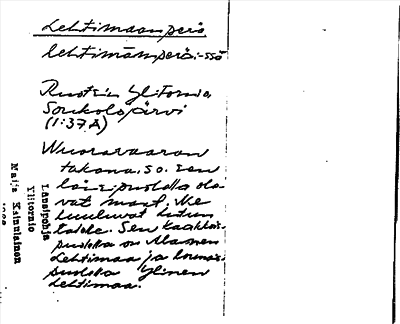 Lehtimaanperä
lehtimämperä:-ssä
Ruotsin Ylitornio
Soukolojärvi
(1:37A)
Vuoravaaran
takana, s.o. sen
länsipuolella ole-
vat maat. Ne
kuuluvat
talole. Sen kaakkois-
puolella on Alanen
Lehtimaa ja luonais-
puolella Ylinen
Lehtimaa.
Länsipohja
Ylitornio
Maija Kainulainen